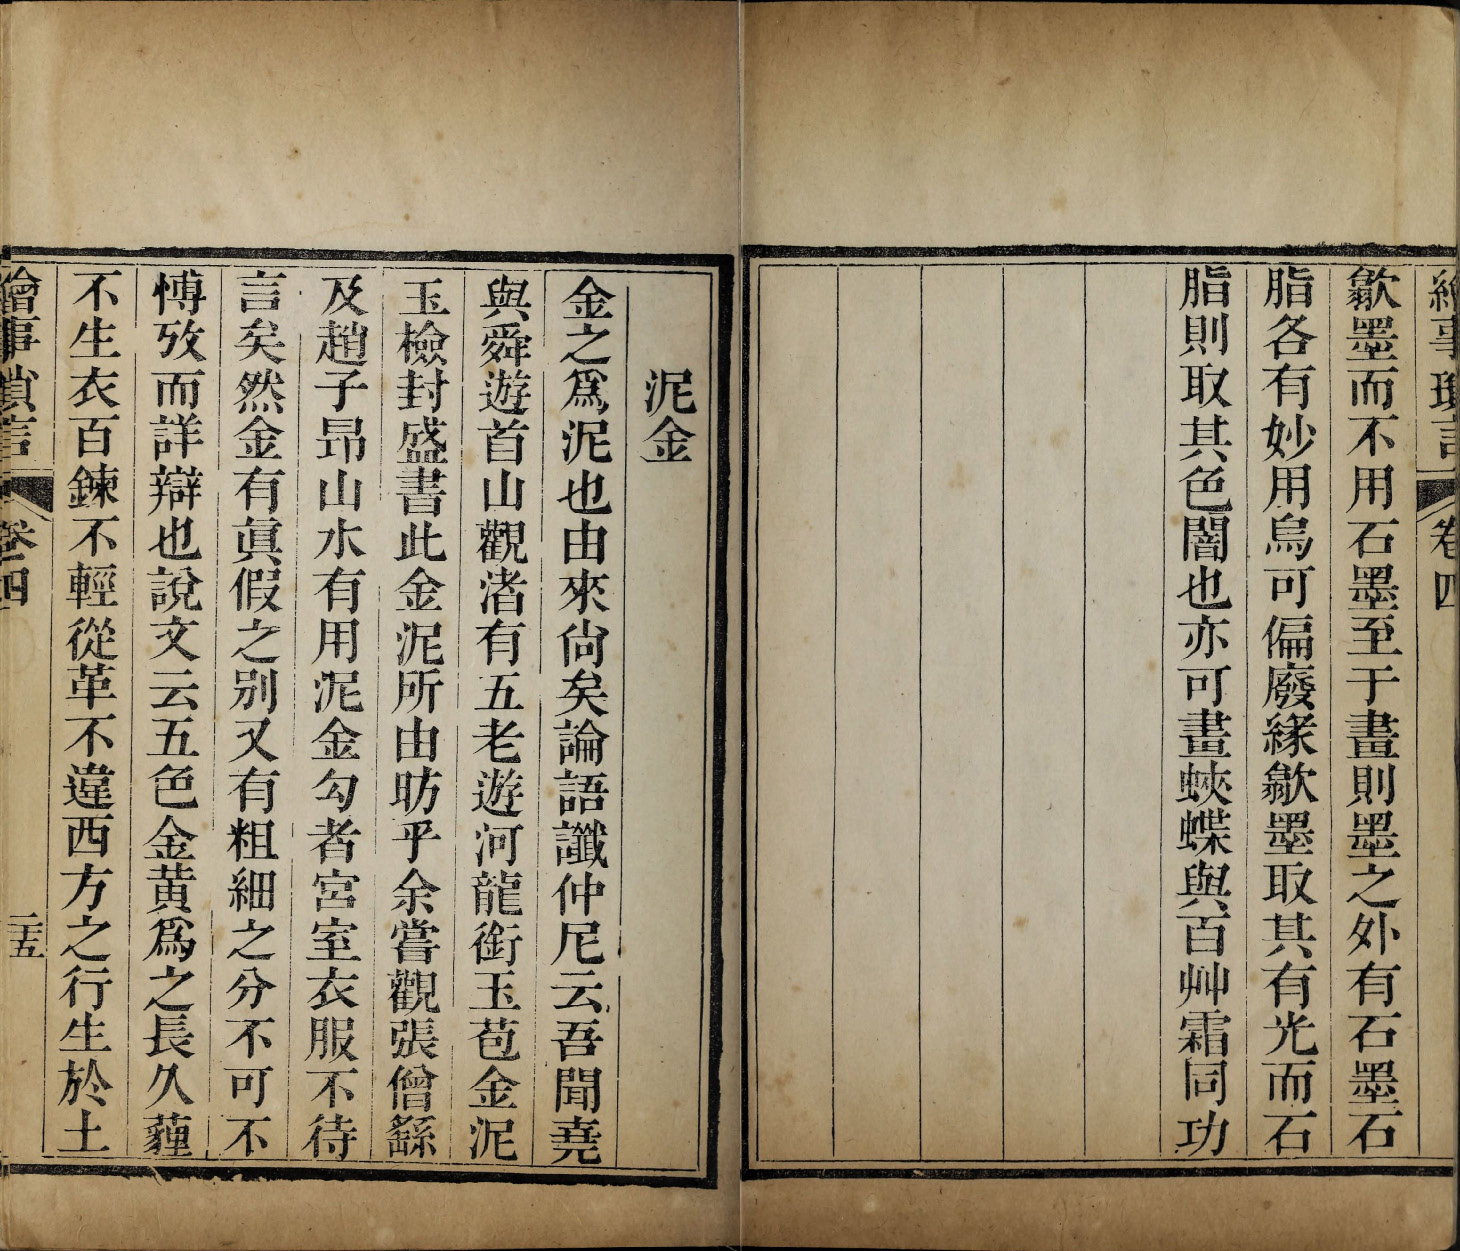 繪事瑣言 卷四
歙墨而不用石墨至于畫則墨之外有石墨石
脂各有妙用烏可偏廢緣歙墨取其有光而石
脂則取其色闇也亦可畫蛺蝶與百艸霜同功
泥金
金之爲泥也由來尙矣論語讖仲尼云吾聞堯
與舜遊首山觀渚有五老遊河龍銜玉苞金泥
玉檢封盛書此金泥所由昉乎余嘗觀張僧繇
及趙子昻山水有用泥金勾者宮室衣服不待
言矣然金有眞假之别又有粗細之分不可不
愽攷而詳辯也說文云五色金黄爲之長久薶
不生衣百鍊不輕從革不違西方之行生於土
繪事瑣言 卷四 二五